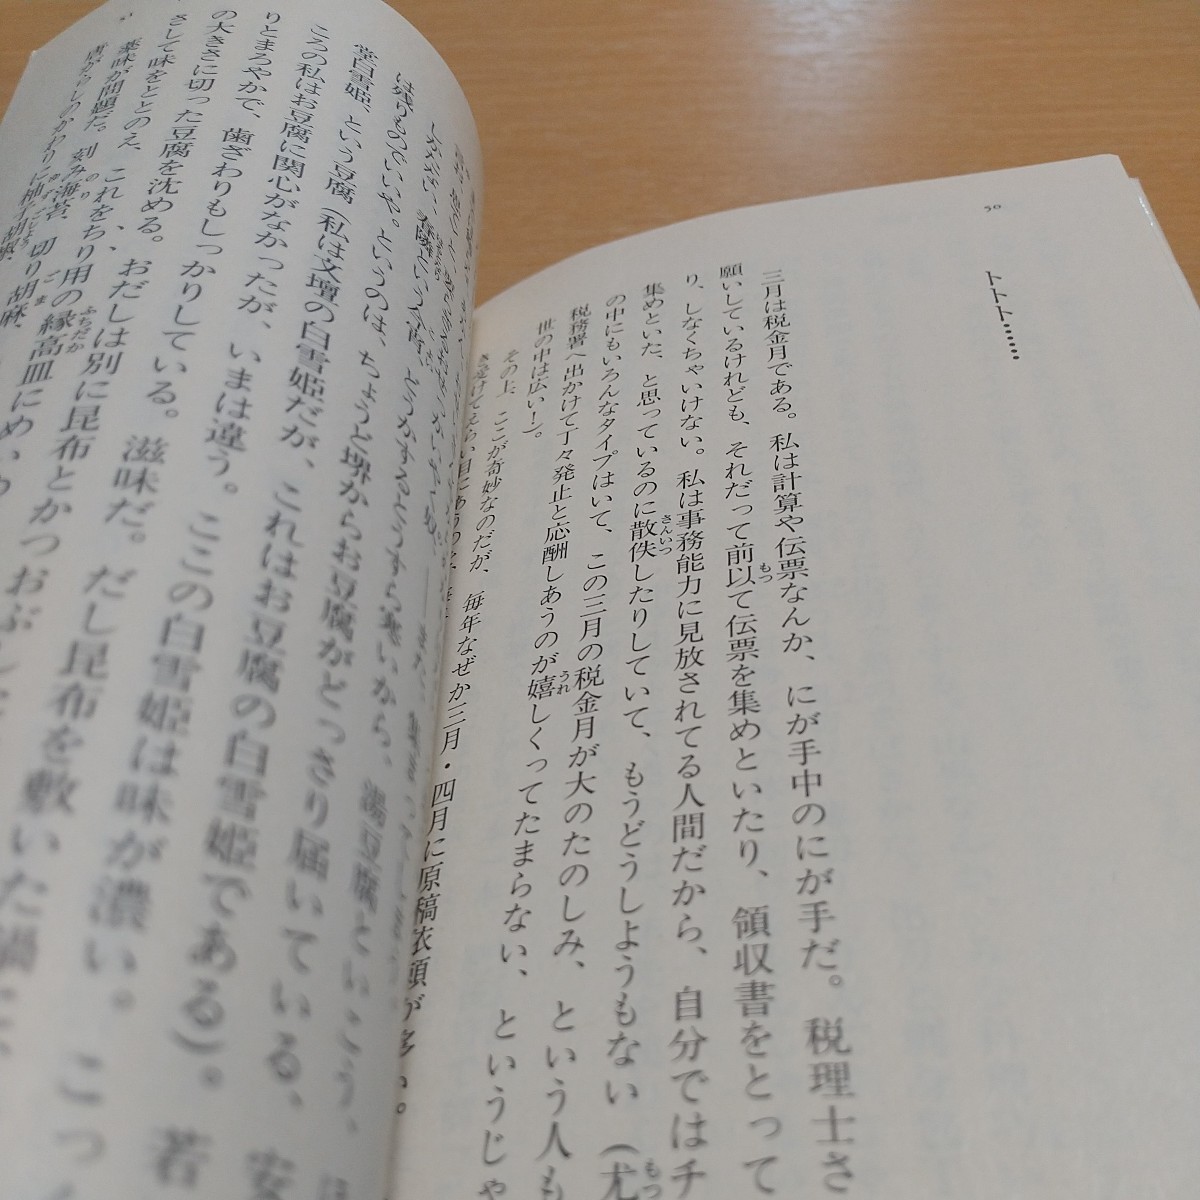 50
トトト……
三月は税金月である。私は計算や伝票なんか、にが手中のにが手だ。税理士さ
願いしているけれども、それだって前以て伝票を集めといたり、領収書をとって
り、しなくちゃいけない。私は事務能力に見放されてる人間だから、自分ではチ
集めといた、と思っているのに散佚したりしていて、もうどうしようもない（尤
の中にもいろんなタイプはいて、この三月の税金月が大のたのしみ、という人も
税務署へ出かけて丁々発止と応酬しあうのが嬉しくってたまらない、というじゃ
世の中は広い！）。
その上、ここが奇妙なのだが、毎年なぜか三月・四月に原稿依頼が多い。
き受けてえらい目にあうの
しかたない、春隣という今宵、どうかするとうすら寒いから、湯豆腐といこう、
は残りものでいいや。というのは、ちょうど堺からお豆腐がどっさり届いている、
堂白雪姫、という豆腐（私は文壇の白雪姫だが、これはお豆腐の白雪姫である）。若
ころの私はお豆腐に関心がなかったが、いまは違う。ここの白雪姫は味が濃い。こっ
りとまろやかで、歯ざわりもしっかりしている。滋味だ。だし昆布を敷いた鍋に、
の大きさに切った豆腐を沈める。おだしは別に昆布とかつおぶし
さして味をととのえ、これをちり用の縁高皿に
薬味が問題だ。刻み海苔、切り胡麻、
唐がらしのかわりに柚子胡椒、